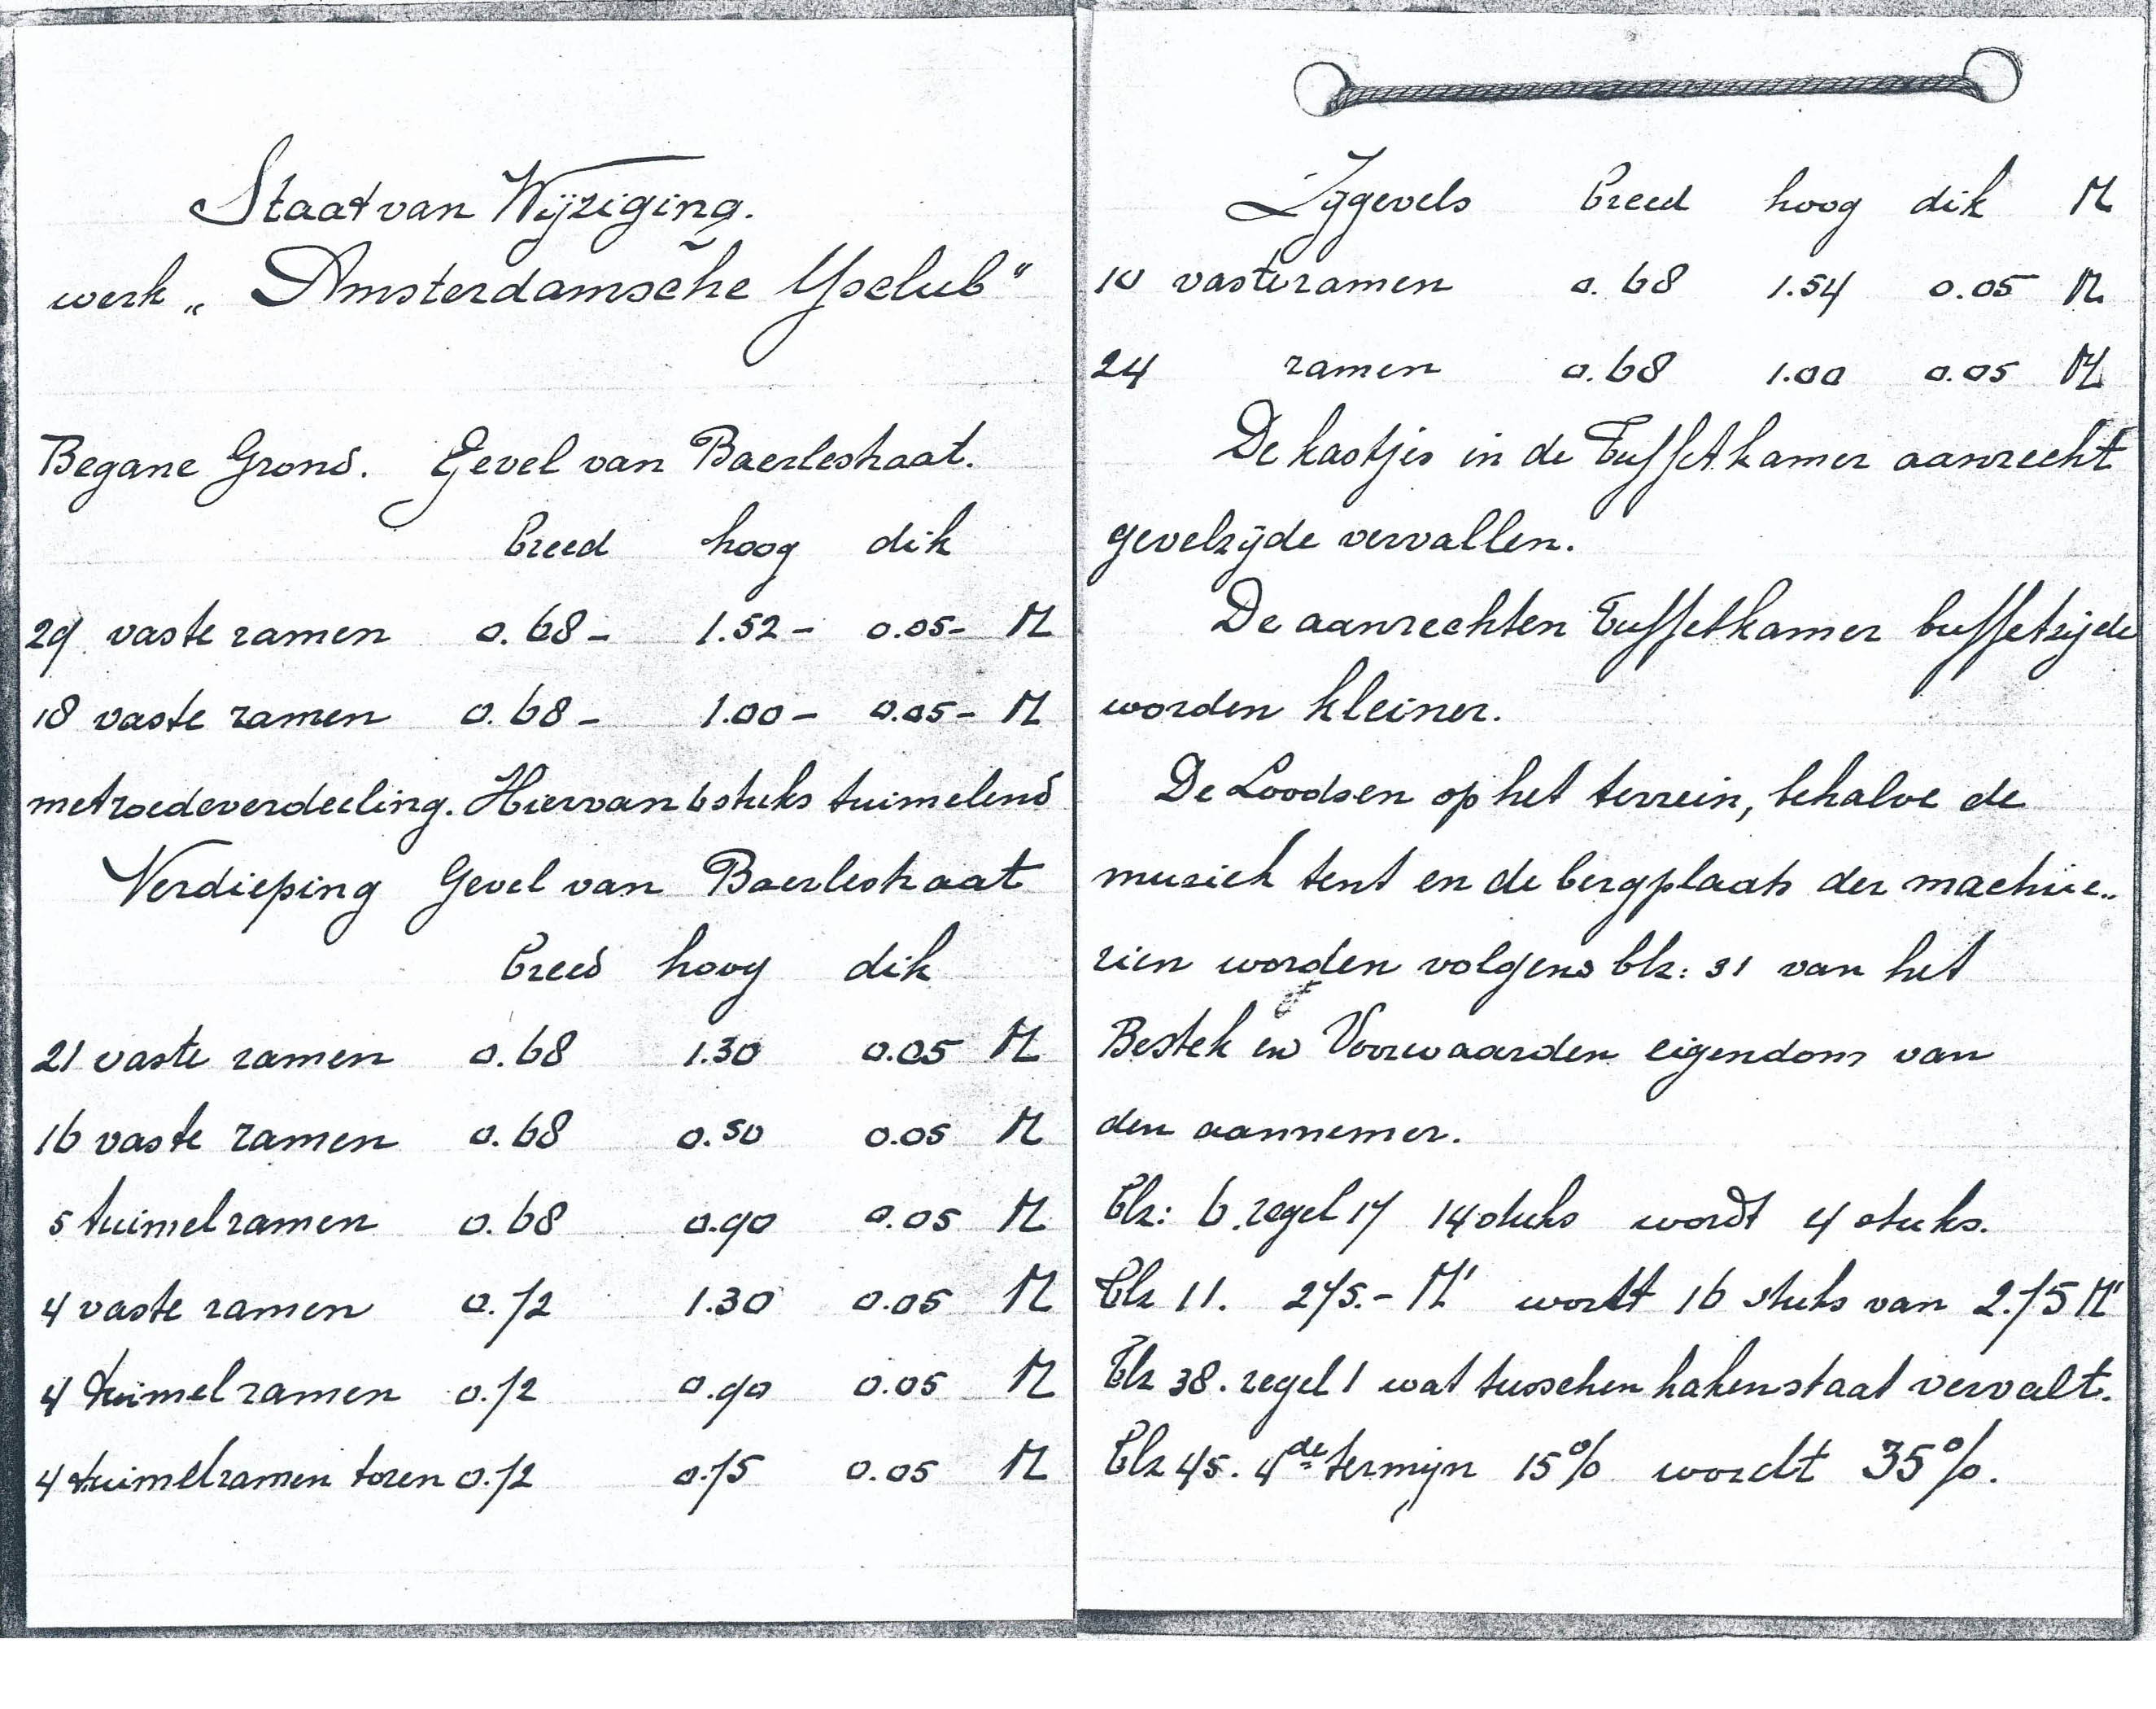 Staat van Wijziging.
werk „ Amsterdamsche Ysclub"
Begane Grond. Gevel van Baerlestraat.
breed hoog dik
29 vaste ramen 0.68- 1.52- 0.05- M
18 vaste ramen 0.68- 1.00- 0.05- M
met roedeverdeeling. Hiervan 6 stuks tuimelend
Verdieping Gevel van Baerlestraat
breed hoog dik
21 vaste ramen 0.68 1.30 0.05 M
16 vaste ramen 0.68 0.50 0.05 M
5 tuimelramen 0.68 0.90 0.05 M
4 vaste ramen 0.72 1.30 0.05 M
4 tuimelramen 0.72 0.90 0.05 M
4 tuimelramen toren 0.72 0.75 0.05 M
Zijgevels breed hoog dik M
10 vasteramen 0.68 1.54 0.05 M
24 ramen 0.68 1.00 0.05 M
De kastjes in de Buffetkamer aanrecht
gevelzijde vervallen.
De aanrechten Buffetkamer buffetzijde
worden kleiner.
De Loodsen op het terrein, behalve de
muziek tent en de bergplaats der machie..
rien worden volgens blz: 31 van het
Bestek en Voorwaarden eigendom van
den aannemer.
Blz: 6. regel 17 14 stuks wordt 4 stuks.
Blz 11. 275.- M' wordt 16 stuks van 2.75 M'
Blz 38. regel 1 wat tusschen haken staat vervalt.
Blz 45. 4de termijn 15% wordt 35%.